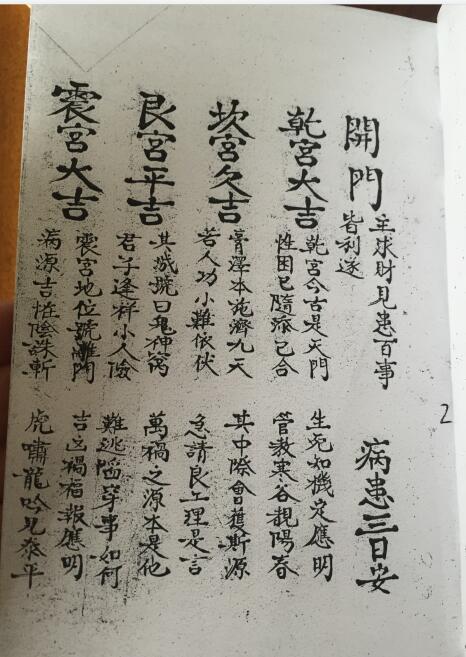 開門 主球財見患百事
皆利遂 病患三日安
乾宮大吉 乾宮今古是天門 生死知機定應明
性困已隨瘵已合 管教寒谷親陽春
坎宮久吉 膏澤本施濟九天 其中際會獲斯源
若人功小難依伏 急請良工理是言
艮宮平吉 其減號曰鬼神窩 萬禍之源本是他
君子逢祥小人儉 難逃陷穽事如何
震宮大吉 震宮地位號雕門 吉凶禍福報應明
病源吉性陰誅斬 虎嘯龍吟見泰平
2